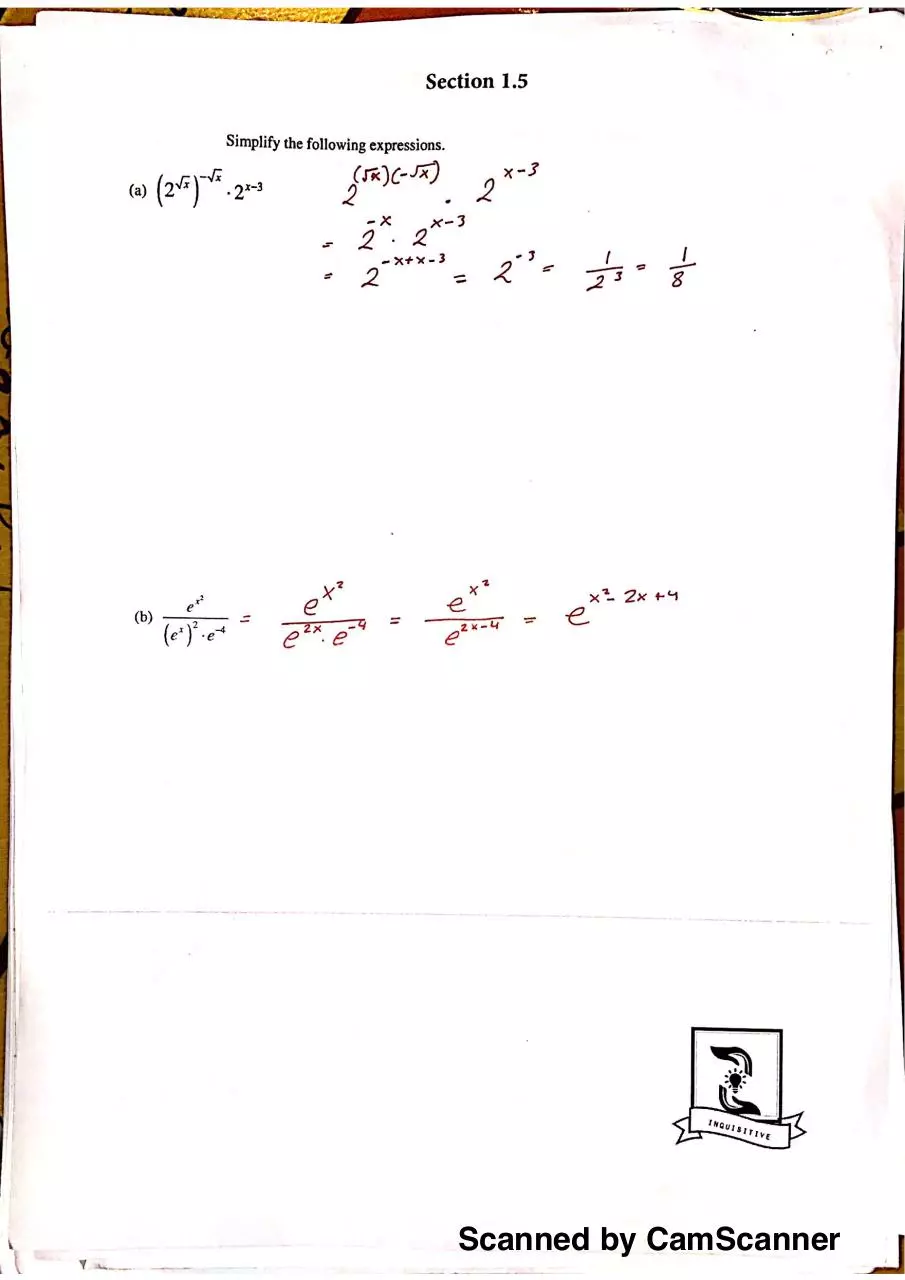 Section 1.5
Simplify the following expressions.
(a) (2^√x)^-√x · 2^x-3    2^(√x)(-√x) · 2^x-3
= 2^-x · 2^x-3
= 2^-x+x-3 = 2^-3 = 1/2^3 = 1/8
(b) e^x^2 / (e^x)^2 · e^-4 = e^x^2 / e^2x · e^-4 = e^x^2 / e^2x-4 = e^x^2-2x+4
INQUISITIVE
Scanned by CamScanner